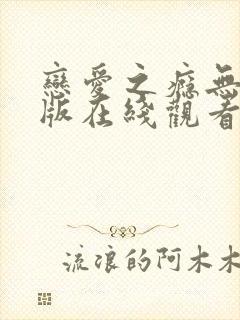 戀愛之癮無
版在綫觀看
流浪的阿木木